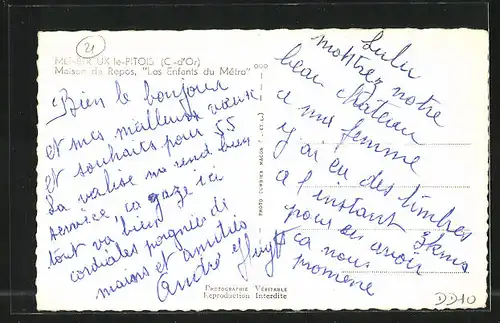 21
MENETREUX le-PITOIS (C.-d'Or)
Maison de Repos, "Les Enfants du Métro"
Bien le bonjour
et mes meilleurs vœux
et souhaits pour 55
La valise me rend bien
service "ça gaze ici
tout va bien"
cordiales poignées de
mains et amitiés
André
Lulu
montrez notre
beau château
a ma femme
y'ai eu des timbres
a l'instant 3 kms
pour en avoir
ça nous
promene
PHOTO COMBIER MACON
Photographie Véritable
Reproduction Interdite
DD10